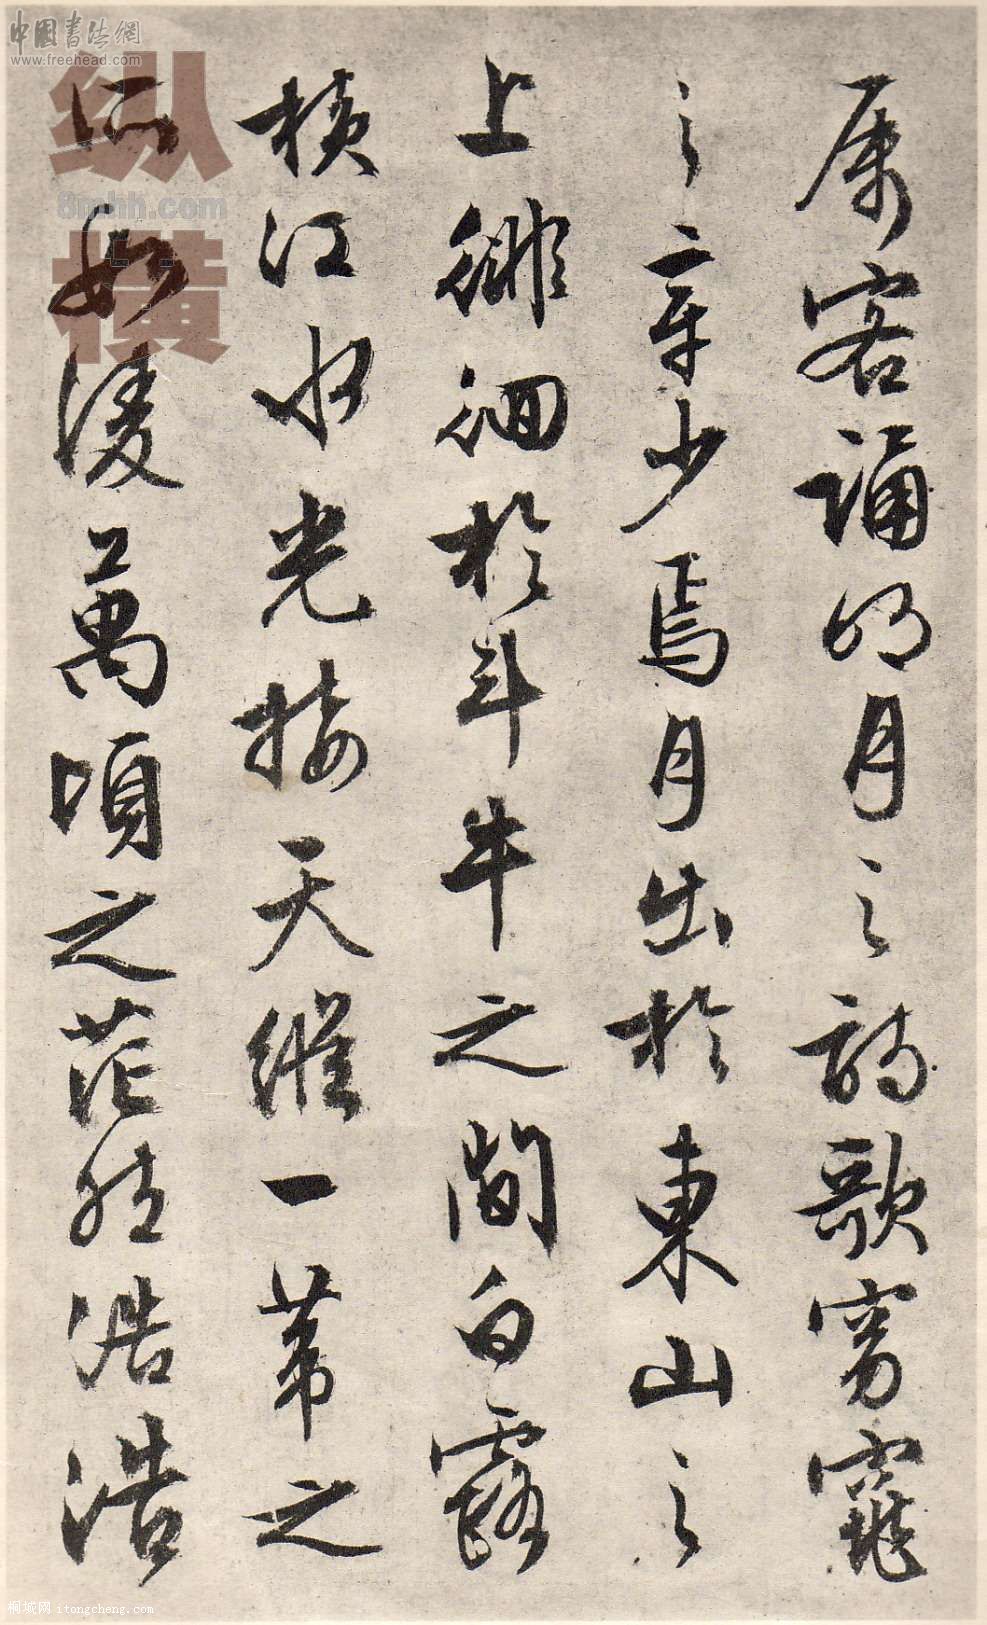 属客诵明月之詩歌窈窕
之章少焉月出於東山之
上徘徊於斗牛之間白露
橫江水光接天縱一葦之
所如淩萬頃之茫然浩浩
中国书法網
www.freehead.com
纵
8mhh.com
横
桐城网 itongcheng.com